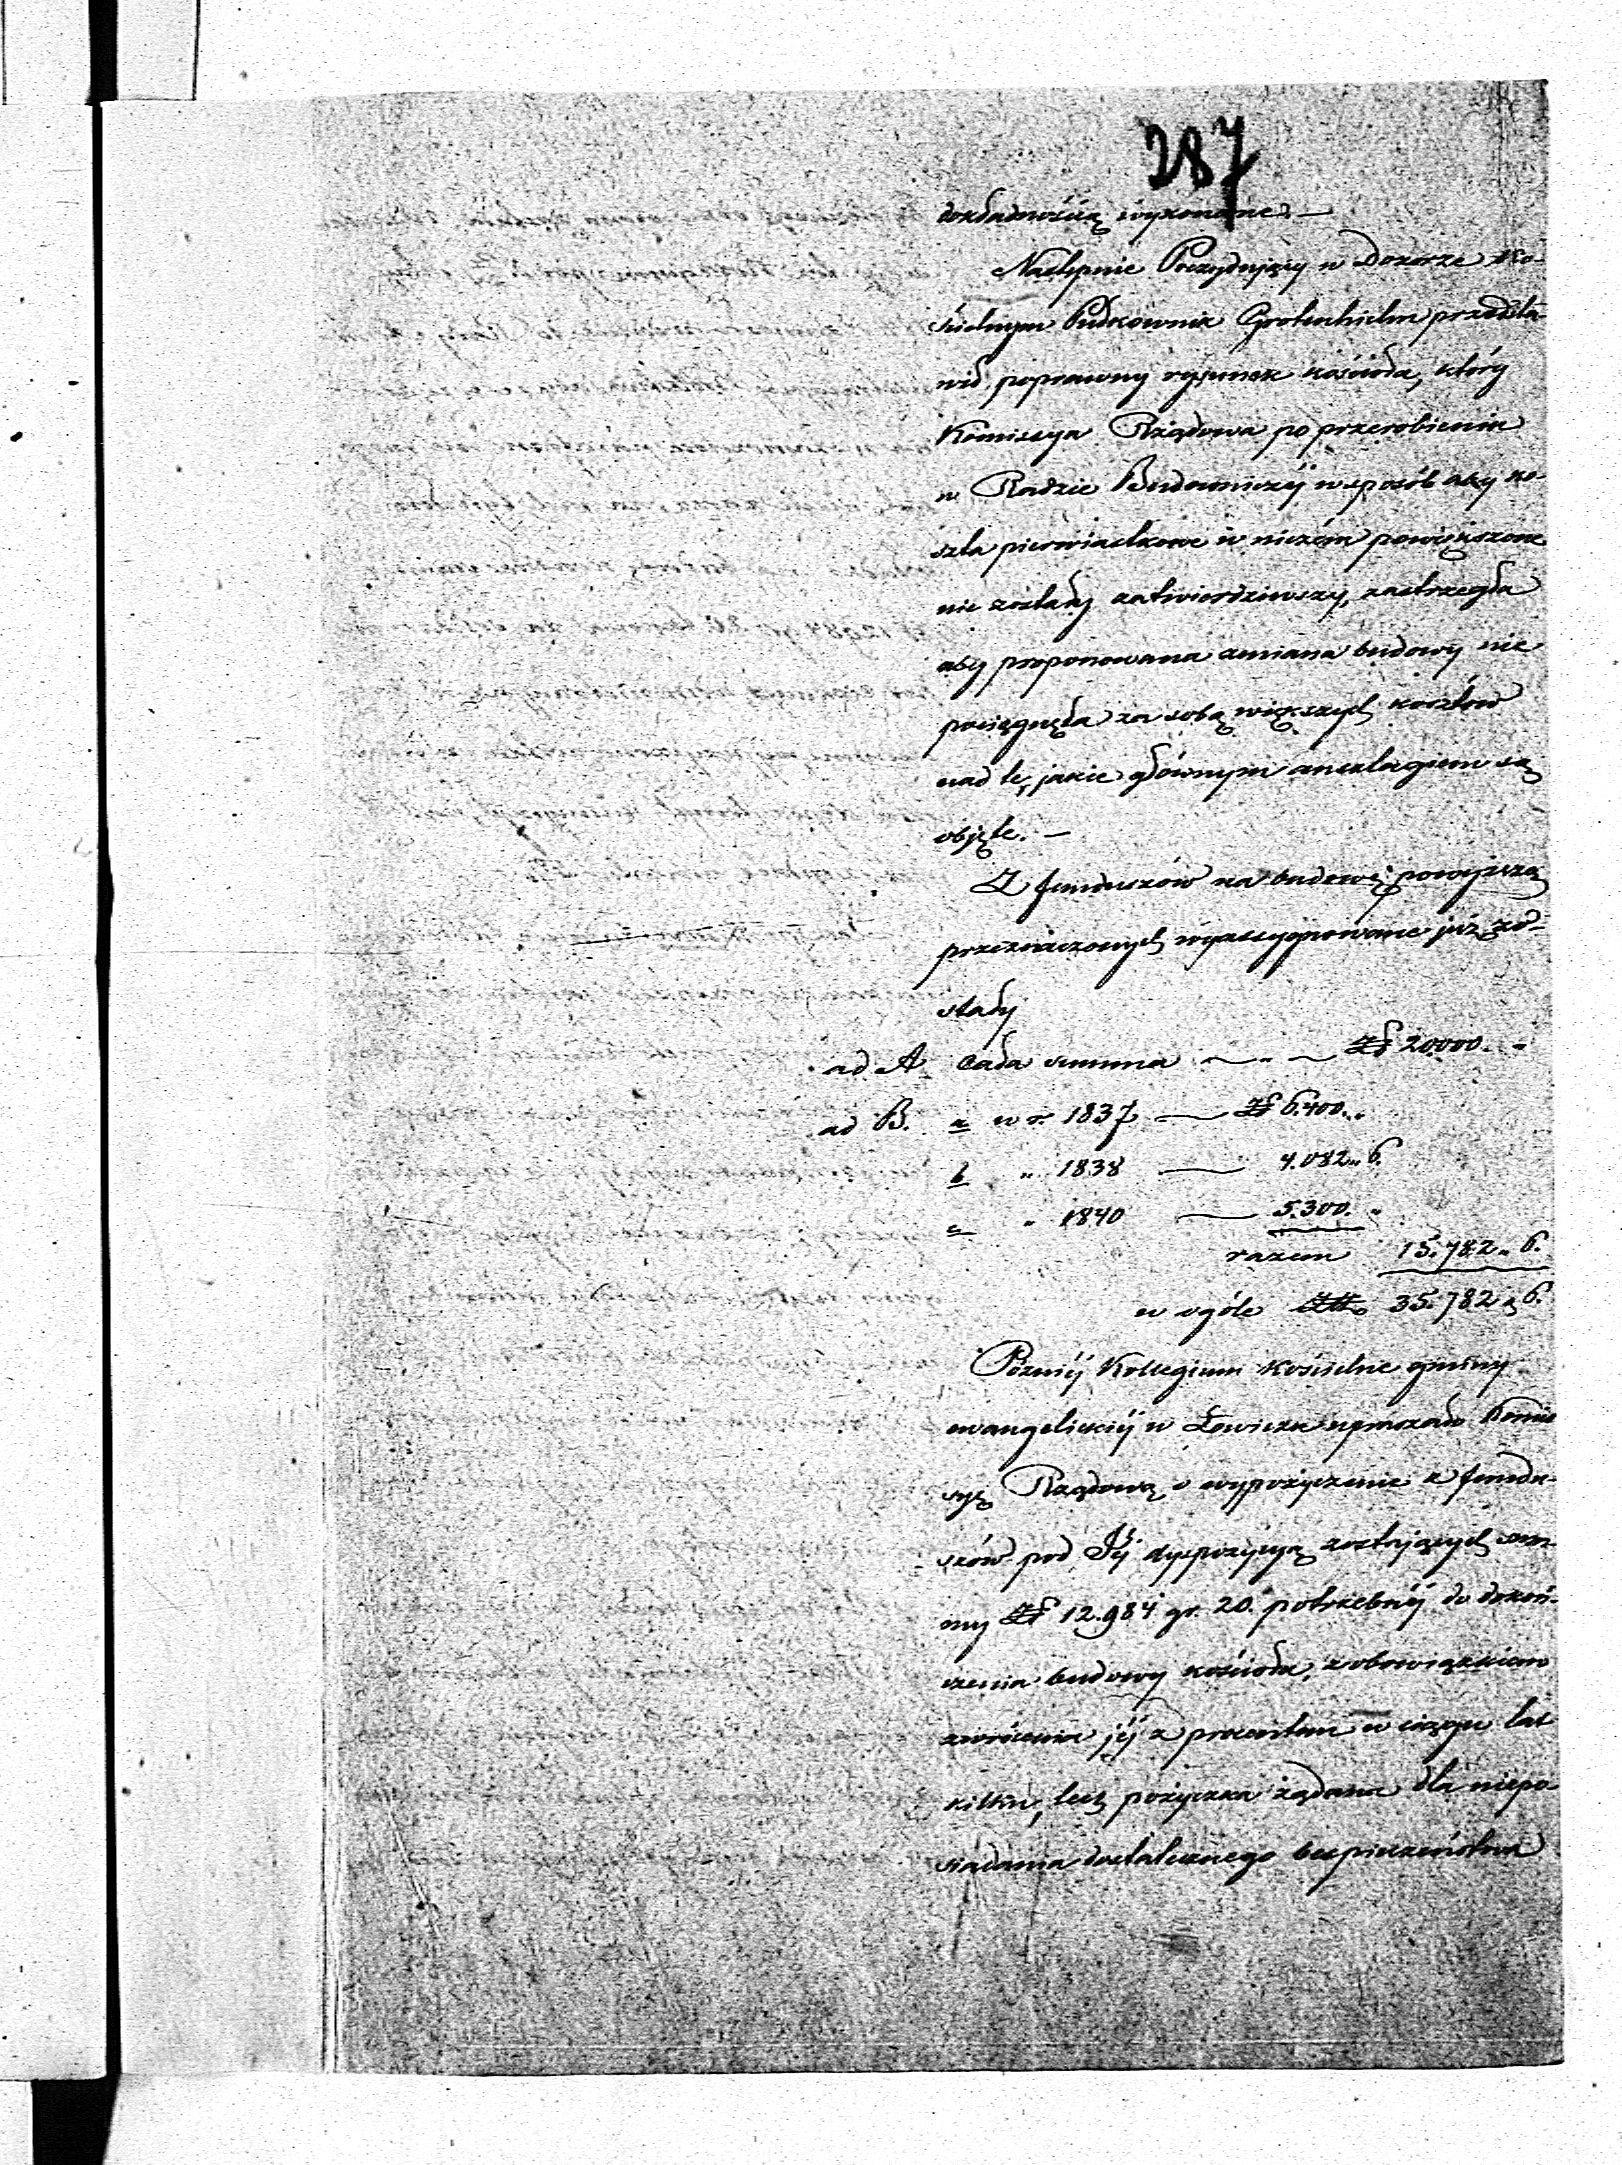 287
dokładnością wykonane. —
Następnie Prezydujący w Dozorze Ko-
ścielnym Pułkownik Grotenhielm przedsta-
wił poprawny rysunek kościoła, który
Kommissya Rządowa po przerobieniu
w Radzie Budowniczéj w sposób aby ko-
szta pierwiastkowe w niczém powiększone
nie zostały zatwierdziwszy, zastrzegła
aby proponowana zmiana budowy nie
pociągnęła za sobą większych kosztów
nad te, jakie głównym anszlagiem są
objęte. —
Z funduszów na budowę powyższą
przeznaczonych wyassygnowane już zo-
stały
ad A. cała summa — „ — Zł 20000. „
ad B. a w r. 1837 — Zł 6.400. „
b „ 1838 — 4.082 „ 6.
c „ 1840 — 5.300. „
razem 15.782 „ 6.
w ogóle 35.782 „ 6.
Poźniéj Kollegium kościelne gminy
ewangelickiéj w Łowiczu upraszało Kommis
syę Rządową o wypożyczenie z fundu-
szów pod Jéj dyspozycyą zostających sum-
my Zł 12.984 gr. 20. potrzebnéj do dokoń-
czenia budowy kościoła, z obowiązkiem
zwrócenia jéj z procentem w ciągu lat
kilku, lecz pożyczka żądana dla niepo-
siadania dostatecznego bezpieczeństwa